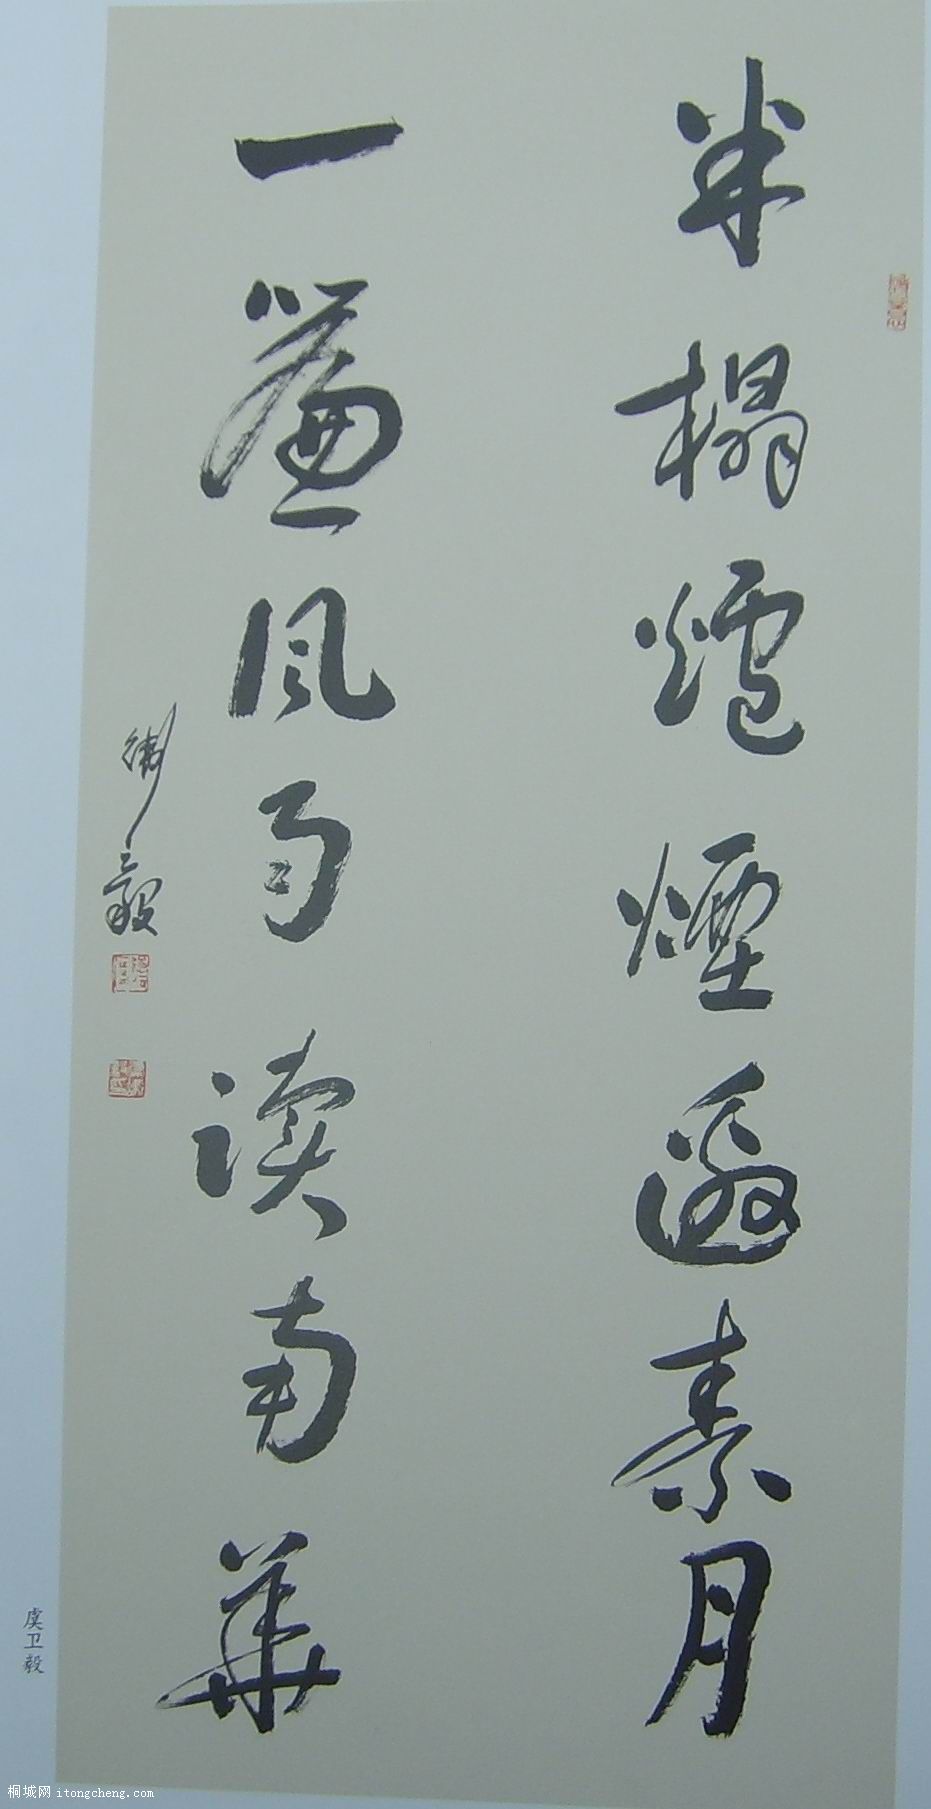 半榻爐煙邀素月
一簾風雨读南華
衛毅
虞卫毅
桐城网 itongcheng.com